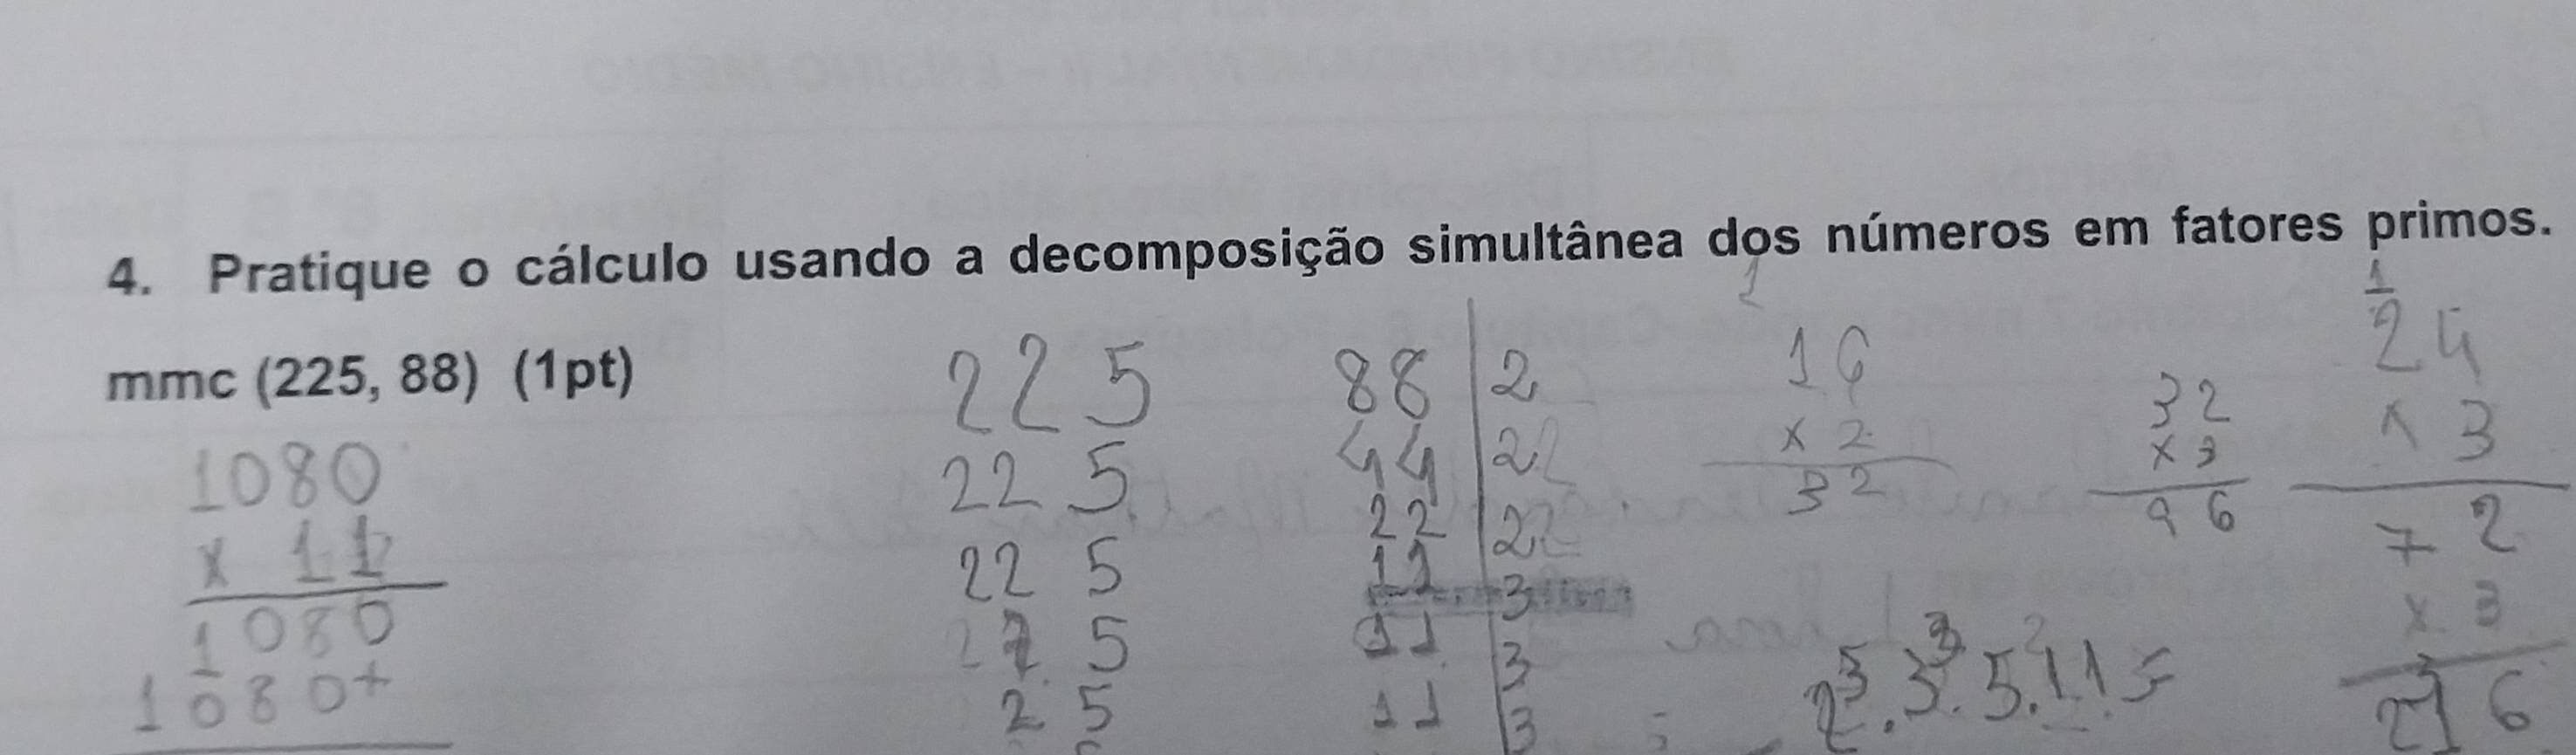 4. Pratique o cálculo usando a decomposição simultânea dos números em fatores primos.
mmc (225, 88) (1pt)
1080
x 11
1080
1080+
225 88 | 2
225 44 | 22
225 22 | 22
225 11 | 3
75 11 | 3
25 11 | 3
16
x 2
32
32
x 3
96
1
24
x 3
72
x 3
216
2⁵.3³.5².11=